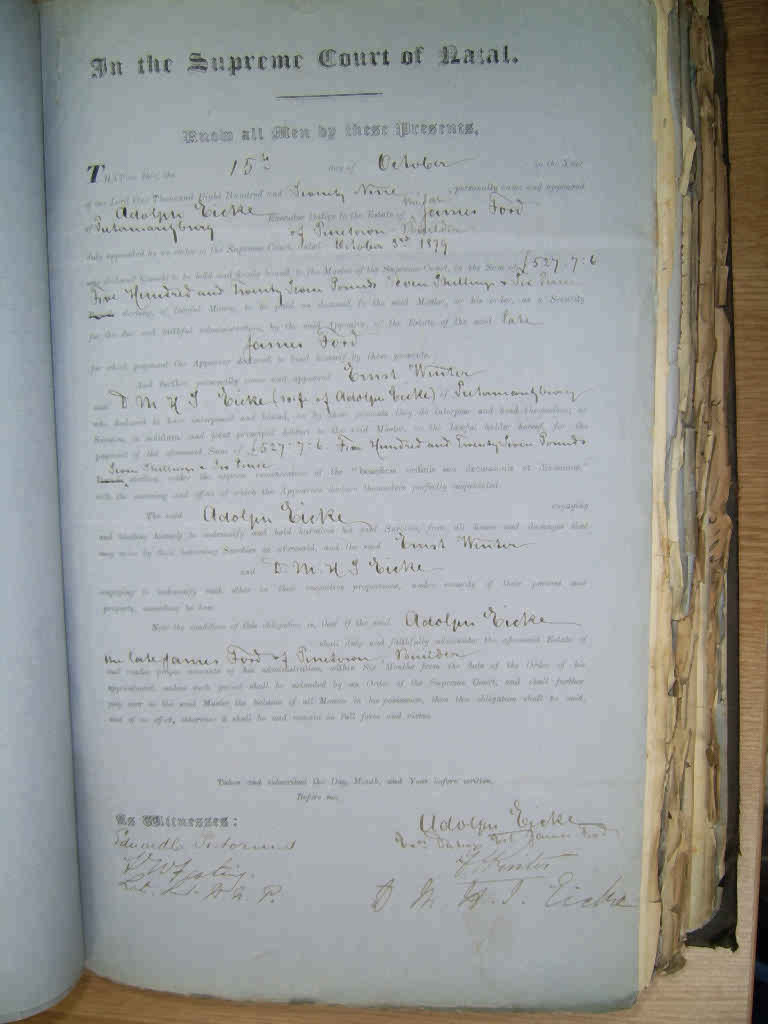 In the Supreme Court of Natal.
Know all Men by these Presents,
THAT on this the 15th day of October in the Year
of our Lord One Thousand Eight Hundred and Seventy Nine personally came and appeared
Adolph Eicke Executor Dative to the Estate of the late James Ford
of Pietermaritzburg of Pinetown Builder
duly appointed by an order of the Supreme Court, dated October 3rd 1879
and declared himself to be held and firmly bound, to the Master of the Supreme Court, in the Sum of £527.7.6
Five Hundred and Twenty Seven Pounds Seven Shillings & Six Pence
sterling, of lawful Money, to be paid on demand, to the said Master, or his order, as a Security
for the due and faithful administration, by the said Appearer, of the Estate of the said late
James Ford
for which payment the Appearer declared to bind himself by these presents.
And further personally came and appeared Ernst Winter
and D M H J Eicke (wife of Adolph Eicke) of Pietermaritzburg
who declared to have interposed and bound, as by these presents they do interpose and bind themselves, as
Sureties, in solidum, and joint principal debtors to the said Master, or the lawful holder hereof, for
payment of the aforesaid Sum of £527-7-6. Five Hundred and Twenty Seven Pounds
Seven Shillings & Six Pence
sterling, under the express renunciation of the "beneficia ordinis seu excussionis et divisionis,"
with the meaning and effect of which the Appearers declare themselves perfectly acquainted.
The said Adolph Eicke engaging
and binding himself to indemnify and hold harmless his said Sureties, from all losses and damages that
may arise by their becoming Sureties as aforesaid, and the said Ernst Winter
and D M H J Eicke
engaging to indemnify each other in their respective proportions, under security of their persons and
property, according to law.
Now the condition of this obligation is, that if the said Adolph Eicke
shall duly and faithfully administer the aforesaid Estate of
the late James Ford of Pinetown Builder
and render proper accounts of his administration, within Six Months from the date of the Order of his
appointment, unless such period shall be extended by an Order of the Supreme Court, and shall further
pay over to the said Master the balance of all Monies in his possession, then this obligation shall be void,
and of no effect, otherwise it shall be and remain in full force and virtue.
Taken and subscribed the Day, Month, and Year before written.
Before me,
As Witnesses:
Adolph Eicke
Exor Dative Est James Ford
E Winter
D M H J Eicke